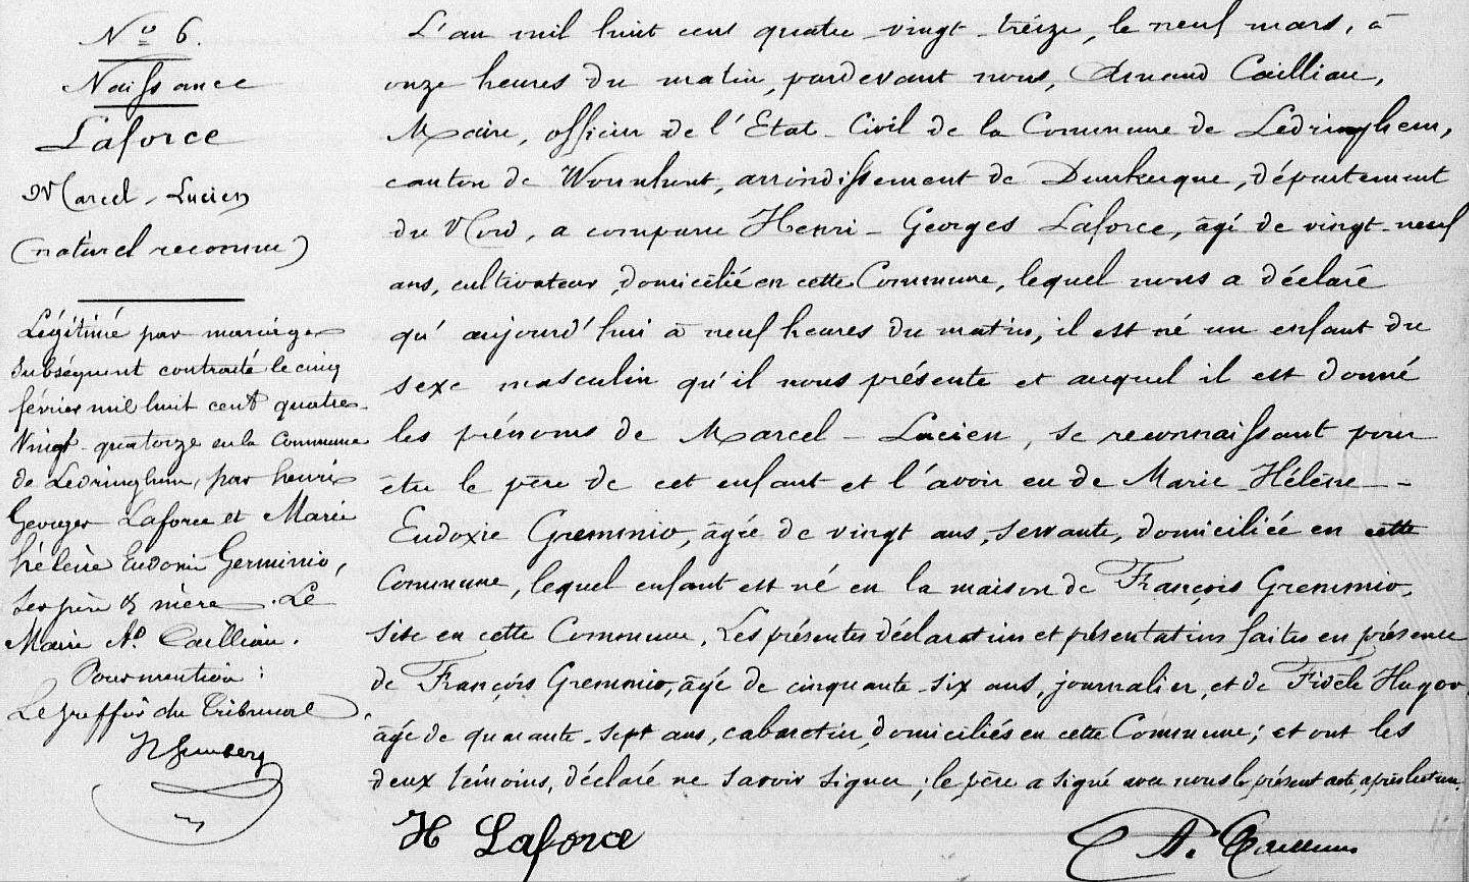 Nº 6.
Naissance
Laforce
Marcel-Lucien
(naturel reconnu)
Légitimé par mariage
subséquent contracté le cinq
février mil huit cent quatre
vingt-quatorze en la commune
de Ledringhem, par henri
Georges Laforce et Marie
hélène Eudoxie Germinio,
ses père & mère. Le
Maire Ad. Cailliau.
Pour mention :
Le greffier du Tribunal
L'an mil huit cent quatre-vingt-treize, le neuf mars, à
onze heures du matin, pardevant nous, Amand Cailliau,
Maire, officier de l'Etat-Civil de la Commune de Ledringhem,
canton de Wormhout, arrondissement de Dunkerque, département
du Nord, a comparu Henri-Georges Laforce, âgé de vingt-neuf
ans, cultivateur, domicilié en cette Commune, lequel nous a déclaré
qu'aujourd'hui à neuf heures du matin, il est né un enfant du
sexe masculin qu'il nous présente et auquel il est donné
les prénoms de Marcel-Lucien, se reconnaissant pour
être le père de cet enfant et l'avoir eu de Marie-Hélène-
Eudoxie Gremmio, âgée de vingt ans, servante, domiciliée en cette
Commune, lequel enfant est né en la maison de François Gremmio,
sise en cette Commune. Les présentes déclaration et présentation faites en présence
de François Gremmio, âgé de cinquante-six ans, journalier, et de Fidèle Hugoo
âgé de quarante-sept ans, cabaretier, domiciliés en cette Commune; et ont les
deux témoins, déclaré ne savoir signer; le père a signé avec nous le présent acte, après lecture.
H Laforce
A. Cailliau